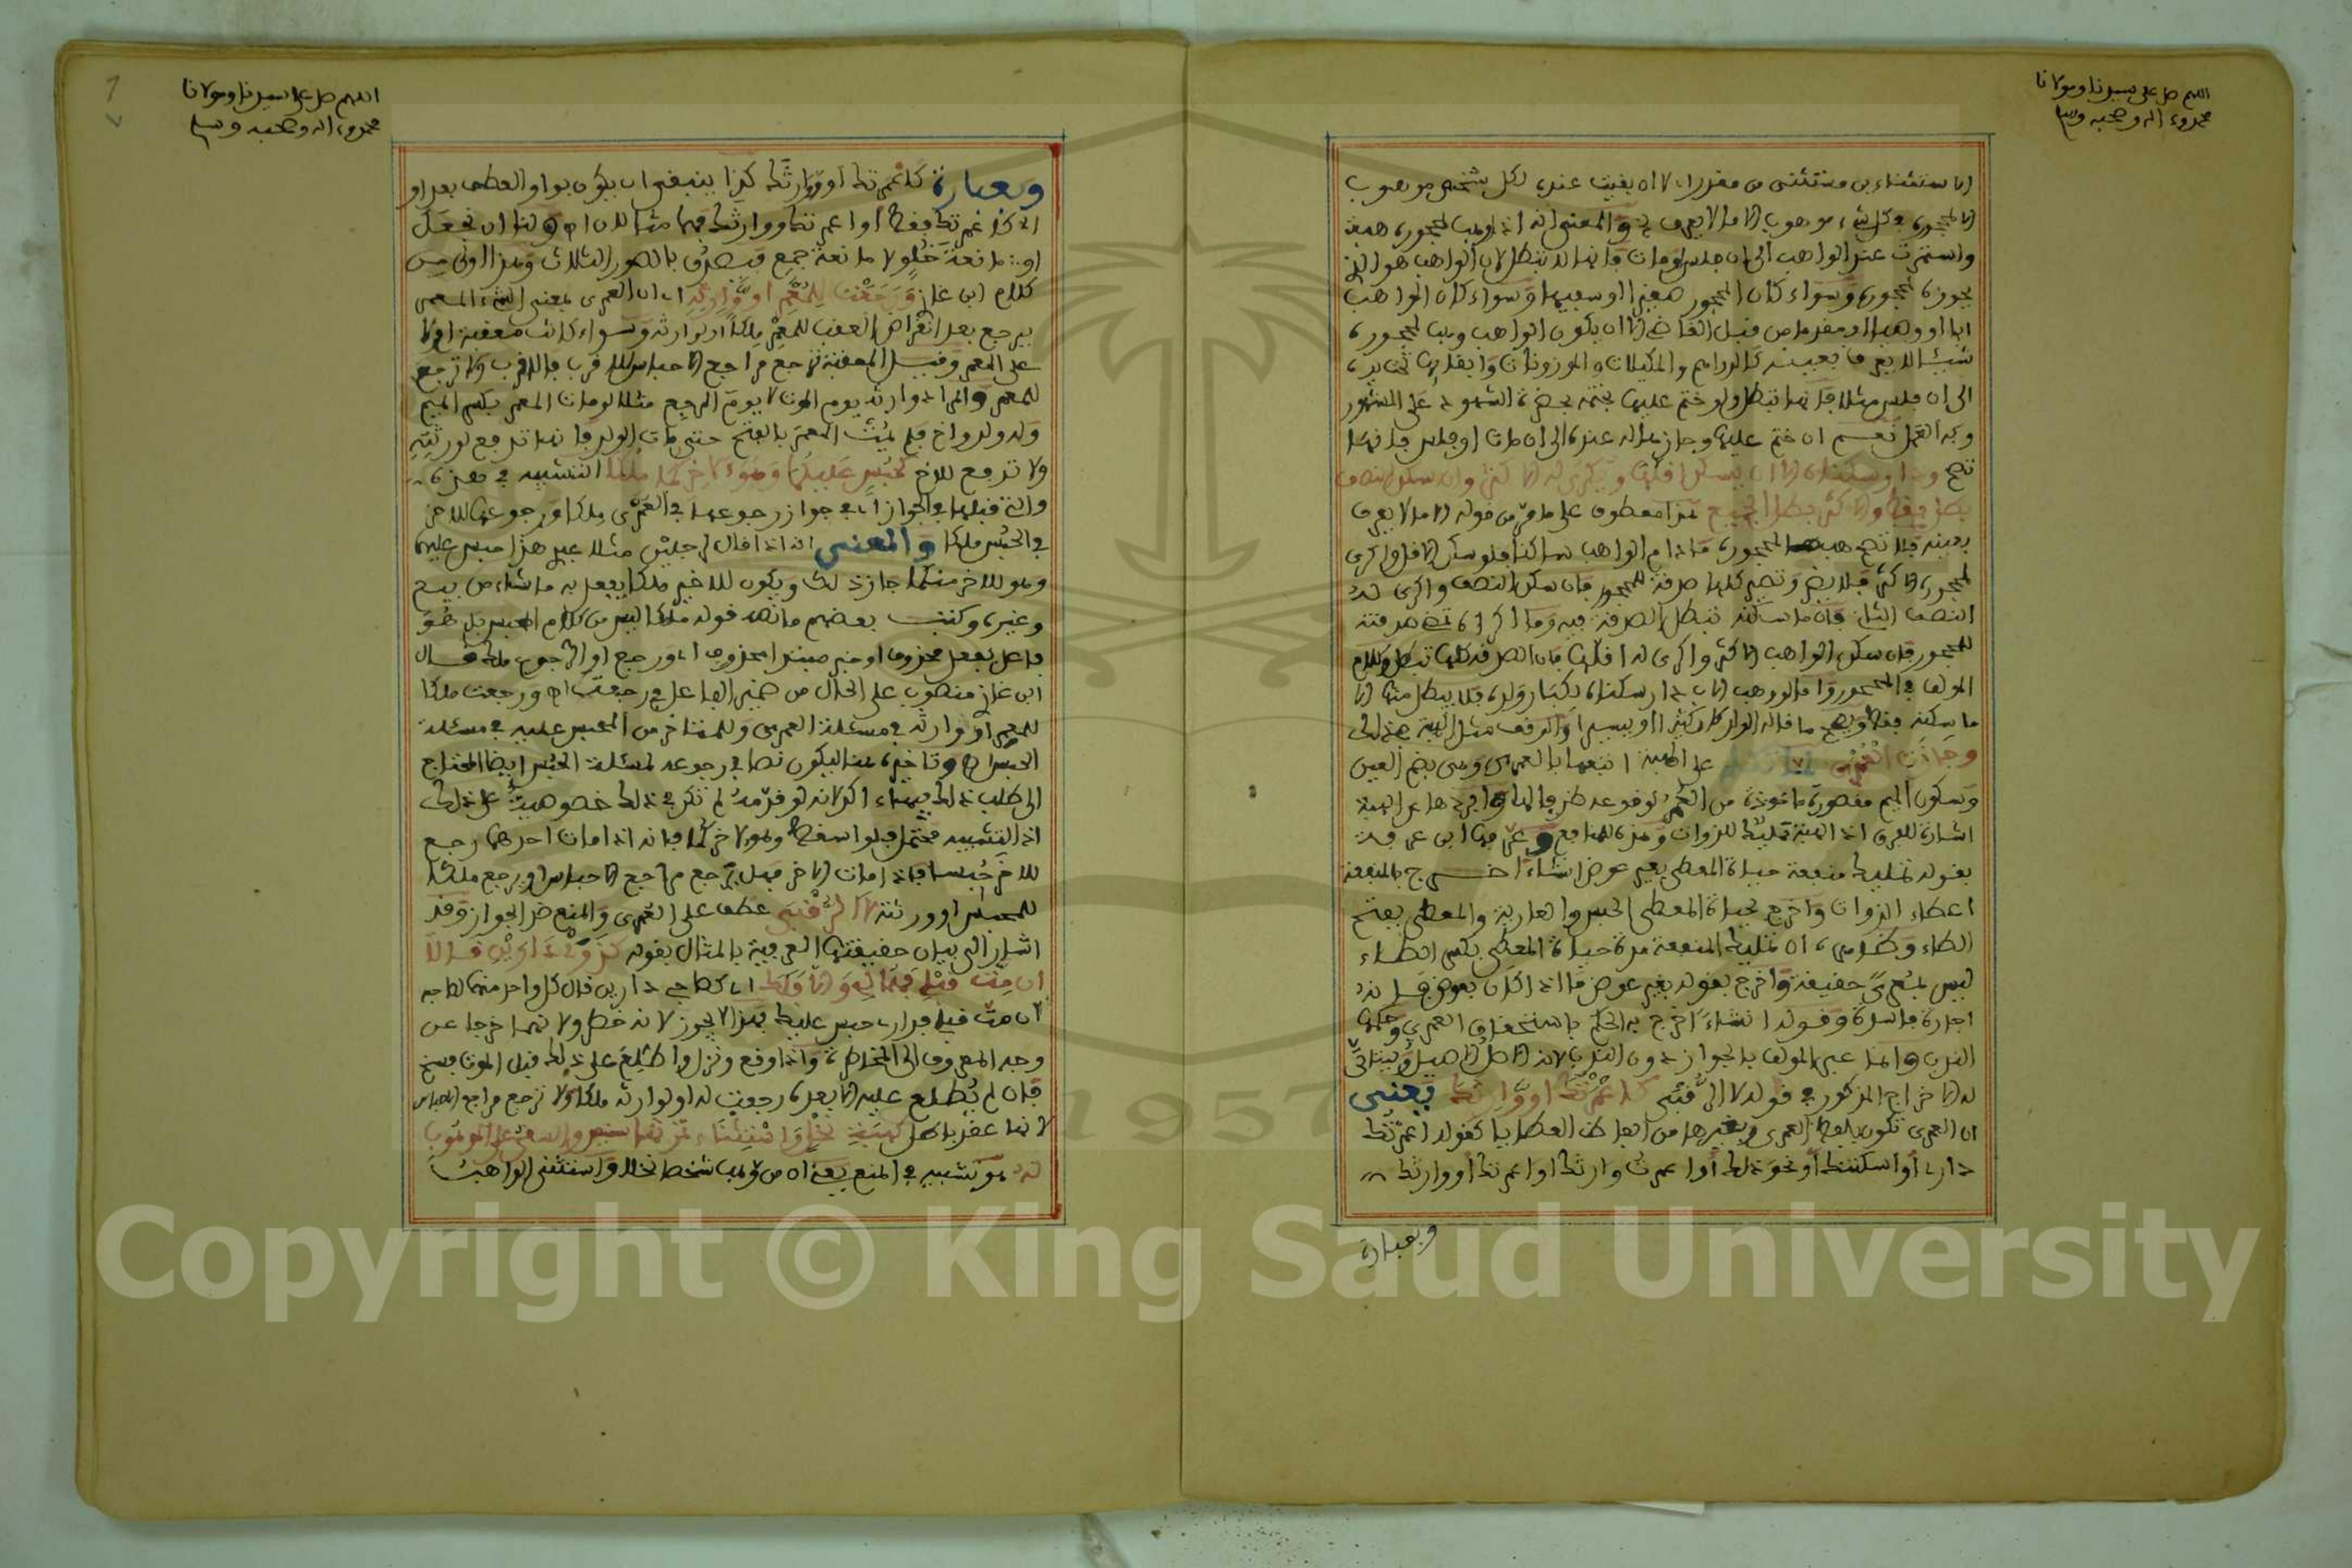 اللهم صل على سيدنا ومولانا
محمد وءاله وصحبه وسلم
الاستثناء من مستثنى من مقدر اي لا ان بقيت عنده لكل شخص موهوب
الا لمحجوره وكل شيء موهوب الا ما لا يعرف الخ والمعنى انه اذا وهب لمحجوره هبة
واستمرت عند الواهب الى ان فلس او مات فانها لا تبطل لان الواهب هو الذي
يحوز لمحجوره وسواء كان المحجور صغيرا او سفيها وسواء كان الواهب
ابا او وصيا او مقدما من قبل القاضي الا ان يكون الواهب وهب لمحجوره
شيئا لا يعرف بعينه كالدراهم والمكيلات والموزونات وابقاها تحت يده
الى ان فلس مثلا فانها تبطل ولو ختم عليها بختمه بحضرة الشهود على المشهور
وبه العمل نعم ان ختم عليها وحازها له عنده الى ان مات او فلس فانها
تصح ودار سكناه الا ان يسكن اقلها ويكرى له الاكثر وان سكن النصف
بطل فقط والاكثر بطل الجميع هذا معطوف على ما مر من قوله الا ما لا يعرف
بعينه فلا تصح هبة لمحجوره ما دام الواهب ساكنا فلو سكن الاقل واكرى
لمحجوره الاكثر فلا يضر وتصير كلها صدقة للمحجور فان سكن النصف واكرى له
النصف الثاني فان ما سكنه تبطل الصدقة فيه وما اكراه تصح صدقته
للمحجور فان سكن الواهب الاكثر واكرى له اقلها فان الصدقة كلها تبطل وكلام
المؤلف في المحجور واما لو وهب الاب دار سكناه لكبار ولده فلا يبطل منها الا
ما سكنه فقط ويصح ما حازه الولد كان كثيرا او يسيرا والوقف مثل الهبة في ذلك
وجازت العمرى على الهبة اتبعها بالعمرى وهي بضم العين
وسكون الميم مقصورة ماخوذة من العمر لوقوعه ظرفا لها وافردها عن الهبة
اشارة للفرق اذ الهبة تمليك للذوات وهذه للمنافع وعرفها ابن عرفة
بقوله تمليك منفعة حياة المعطى بغير عوض انشاء اخرج بالمنفعة
اعطاء الذوات واخرج بحياة المعطى الحبس والعارية والمعطى بفتح
الطاء وكسرها لان تمليك المنفعة مدة حياة المعطي بكسر الطاء
ليس بعمرى حقيقة واخرج بقوله بغير عوض ما اذا كان بعوض فانه
اجارة فاسدة وقوله انشاء اخرج به الحكم باستحقاق العمرى وحكمها
الندب وانما عبر المؤلف بالجواز دون الندب لانه الاصل وليتاتى
له الاخراج المذكور في قوله لا الرقبى كاعمرتك او وارثك يعني
ان العمرى تكون بلفظ العمرى وبغيرها من الفاظ العطايا كقوله اعمرتك
داري او اسكنتك او نحو ذلك او اعمرت وارثك او اعمرتك او وارثك
وبعبارة
اللهم صل على سيدنا ومولانا
محمد وءاله وصحبه وسلم
وبعبارة كاعمرتك او وارثك كذا ينبغي ان يكون بواو العطف بعد او
اي كاعمرتك فقط او اعمرتك ووارثك فهما مثالان اه ولنا ان نجعل
او مانعة خلو لا مانعة جمع فيصدق بالصور الثلاث وهذا اولى من
كلام ابن غازي ورجعت للمعمر او وارثه اي ان العمرى بمعنى الشيء المعمر
يرجع بعد انقراض العقب للمعمر ملكا او لوارثه وسواء كانت معقبة ام لا
على المعمر وقيل المعقبة ترجع مراجع الاحباس للاقرب فالاقرب ولا ترجع
للمعمر والمراد وارثه يوم الموت لا يوم المرجع مثلا لو مات المعمر بكسر الميم
وله ولد واخ فلم يمت المعمر بالفتح حتى مات الولد فانها ترجع لورثته
ولا ترجع للاخ كحبس عليكما وهو لاخركما ملكا التشبيه في هذه
والتي قبلها في الجواز اي في جواز رجوعها في العمرى ملكا ورجوعها للاخر
في الحبس ملكا والمعنى انه اذا قال لرجلين مثلا عبدي هذا حبس عليكما
وهو للاخر منكما جاز ذلك ويكون للاخير ملكا يفعل به ما شاء من بيع
وغيره وكتب بعضهم ما نصه قوله ملكا ليس من كلام المحبس بل هو
فاعل بفعل محذوف او خبر مبتدا محذوف اي ورجع او الرجوع ملك قال
ابن غازي منصوب على الحال من ضمير الفاعل في رجعت اه ورجعت ملكا
للمعمر او وارثه في مسئلة العمرى وللمتاخر من المحبس عليه في مسئلة
الحبس اه وتاخيره هنا ليكون نصا في رجوعه لمسئلة الحبس ايضا المحتاج
الى طلب ذلك فيها اكثر لانه لو قدمه لم تكن في ذلك خصوصية على ذلك
اذ التشبيه محتمل فلو اسقط وهو لاخركما فانه اذا مات احدهما رجع
للاخر حبسا فاذا مات الاخر فهل ترجع مراجع الاحباس او يرجع ملكا
للمحبس او ورثته لا الرقبى عطف على العمرى والمنع ضد الجواز وقد
اشار الى بيان حقيقتها العرفية بالمثال بقوله كذوي دارين قالا
ان مت قبلي فهما لي والا فلك اي كصاحبي دارين قال كل واحد منهما لصاحبه
ان مت قبلي فداري حبس عليك فهذا لا يجوز لانه خطر ولانهما خرجا عن
وجه المعروف الى المخاطرة واذا وقع ونزل واطلع على ذلك قبل الموت فسخ
فان لم يطلع عليه الا بعده رجعت له او لوارثه ملكا ولا ترجع مراجع الاحباس
لانها عقد باطل كهبة نخل واستثناء ثمرتها سنين والسقي على الموهوب
له هو تشبيه في المنع يعني ان من وهب شخصا نخلا واستثنى الواهب